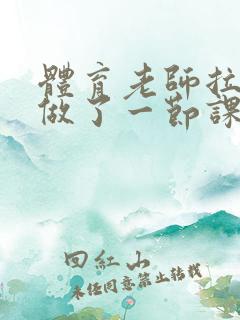 體育老師拉
做了一節課
回紅山
未經同意禁止轉載